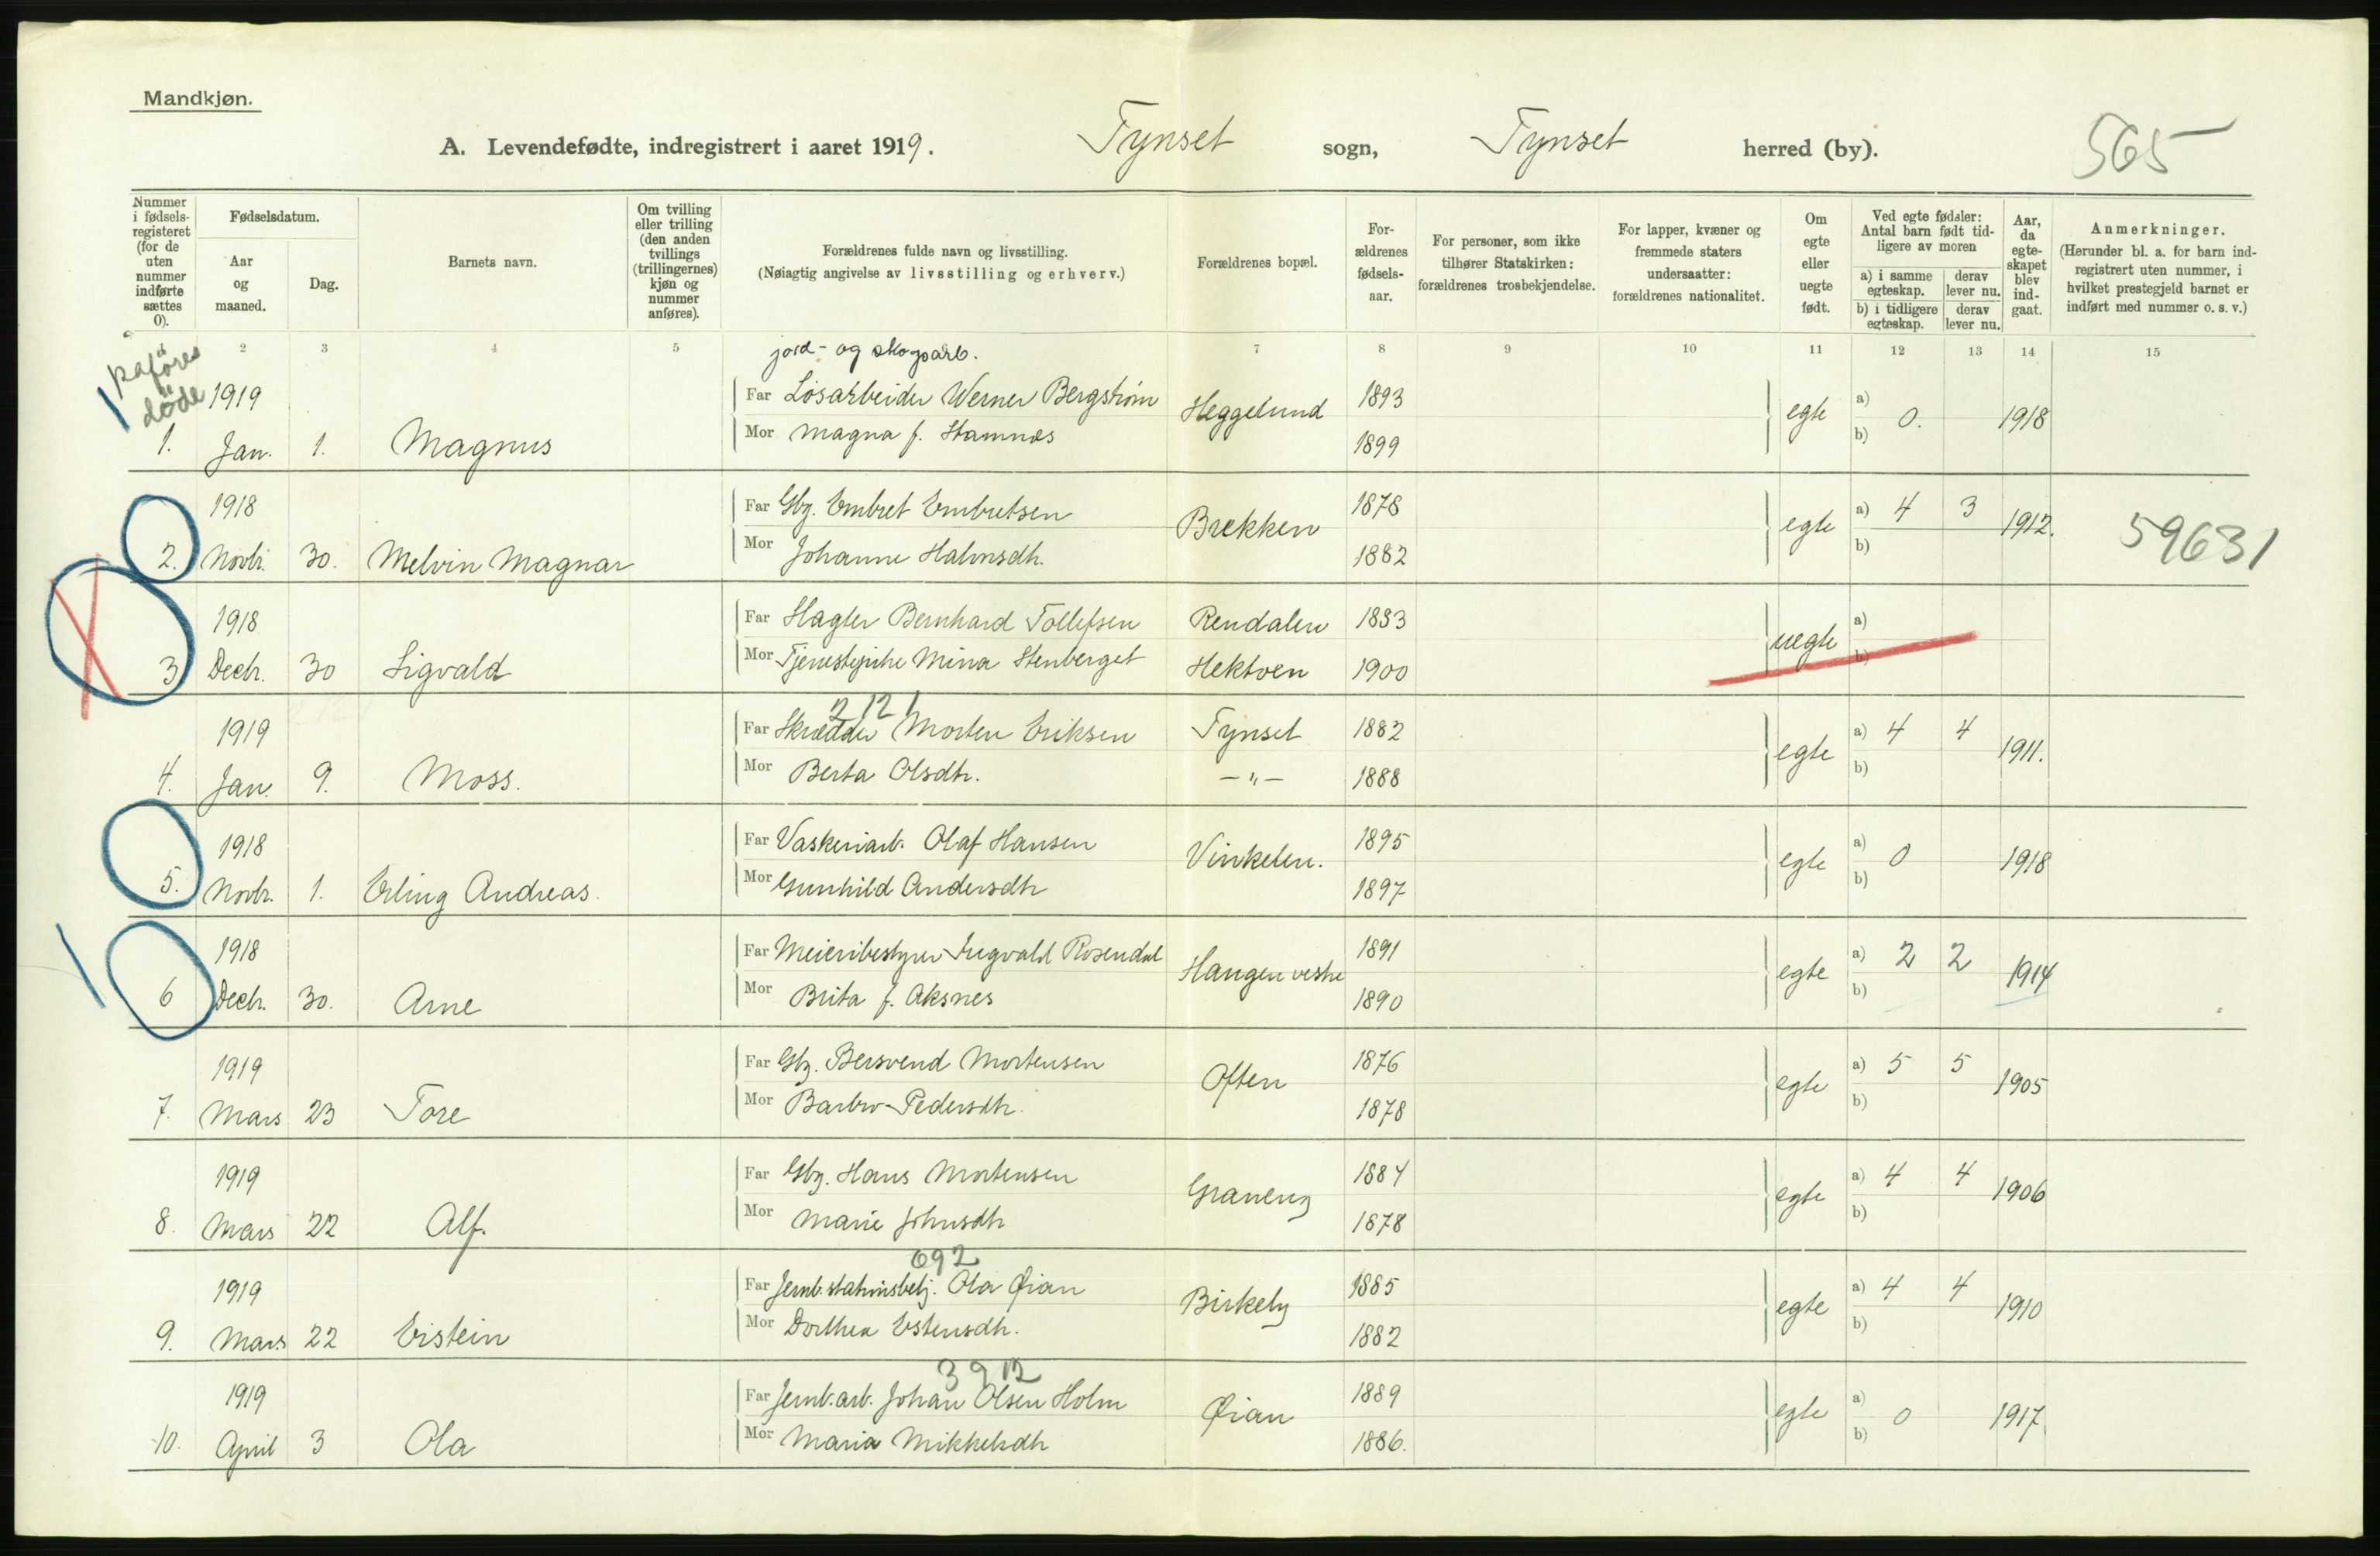 Mandkjøn.
A. Levendefødte, indregistrert i aaret 1919. Tynset sogn, Tynset herred (by). 565
Nummer i fødsels-registeret (for de uten nummer indførte sættes 0).
Fødselsdatum.
Aar og maaned.
Dag.
Barnets navn.
Om tvilling eller trilling (den anden tvillings (trillingernes) kjøn og nummer anføres).
Forældrenes fulde navn og livsstilling.
(Nøiagtig angivelse av livsstilling og erhverv.)
Forældrenes bopæl.
For-ældrenes fødsels-aar.
For personer, som ikke tilhører Statskirken: forældrenes trosbekjendelse.
For lapper, kvæner og fremmede staters undersaatter: forældrenes nationalitet.
Om egte eller uegte født.
Ved egte fødsler: Antal barn født tid-ligere av moren
a) i samme egteskap. derav lever nu.
b) i tidligere egteskap. derav lever nu.
Aar, da egte-skapet blev ind-gaat.
Anmerkninger.
(Herunder bl. a. for barn ind-registrert uten nummer, i hvilket prestegjeld barnet er indført med nummer o. s. v.)
2 3 4 5 7 8 9 10 11 12 13 14 15
paføres døde
jord- og skogsarb.
1919 Far Løsarbeider Werner Bergstrøm Heggelund 1893 egte a) 0. 1918
1. Jan. 1. Magnus Mor Magna f. Stamnes 1899 b)
1918 Far Gbr. Embret Embretsen Brekken 1878 egte a) 4 3 1912. 59631
2. Novbr. 30. Melvin Magnar Mor Johanne Halvorsdtr. 1882 b)
1918 Far Bernhard Tollefsen Rendalen 1883 uegte a)
3 Decbr. 30 Sigvald Mor Tjenestepike Mina Stenberget Hektoen 1900 b)
2 12 1
1919 Far Skrædder Morten Eriksen Tynset 1882 egte a) 4 4 1911.
4. Jan. 9. Moss. Mor Berta Olsdtr. — „ — 1888 b)
1918 Far Vaskeriarb. Olaf Hansen Vinkelen. 1895 egte a) 0 1918
5. Novbr. 1. Erling Andreas. Mor Gunhild Andersdtr 1897 b)
1918 Far Meieribestyrer Ingvald Rosendal Haugen vestre 1891 egte a) 2 2 1914
6 Decbr. 30. Arne Mor Brita f. Aksnes 1890 b)
1919 Far Gbr. Bersvend Mortensen Often 1876 egte a) 5 5 1905
7. Mars 23 Tore Mor Barbro Pedersdtr. 1878 b)
1919 Far Gbr. Hans Mortensen Graneng 1884 egte a) 4 4 1906
8. Mars 22 Alf. Mor Marie Johnsdtr 1878 b)
092
1919 Far Jernb.stationsbetj. Ola Øian Birkely 1885 egte a) 4 4 1910
9. Mars 22 Eistein Mor Dorthea Estensdtr. 1882 b)
3 9 12
1919 Far Jernb.arb. Johan Olsen Holm Øian 1889 egte a) 0 1917
10. April 3 Ola Mor Maria Mikkelsdtr 1886. b)